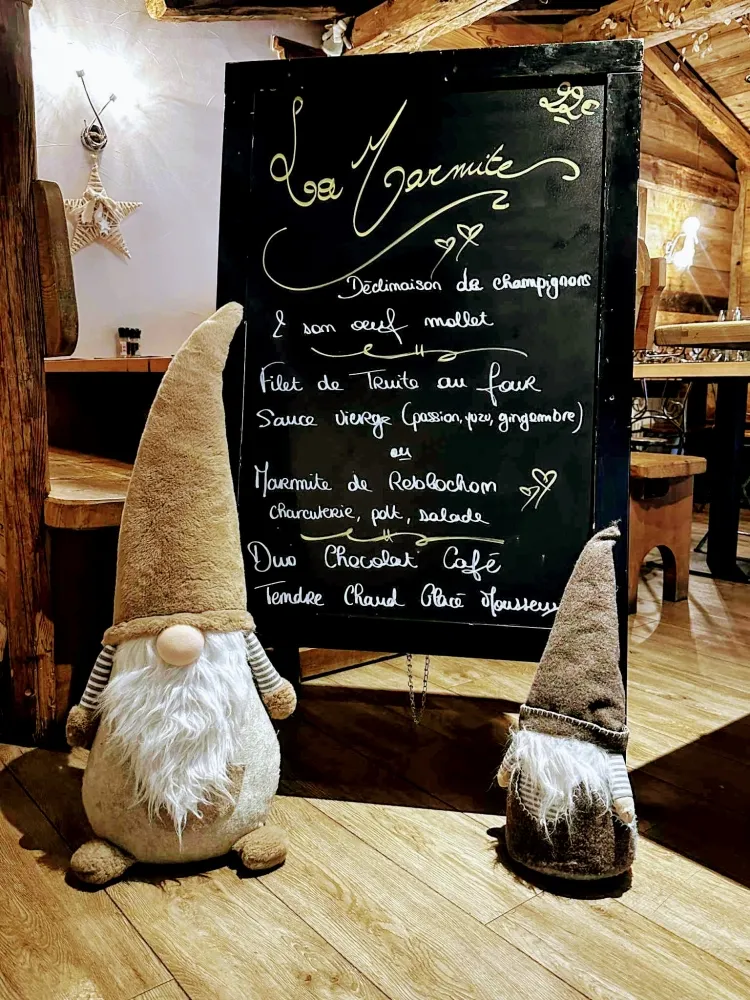 22€
La Marmite
Déclinaison de champignons
& son oeuf mollet
Filet de Truite au four
Sauce vierge (passion, yuzu, gingembre)
ou
Marmite de Reblochon
charcuterie, pdt, salade
Duo Chocolat Café
Tendre Chaud Glacé Mousseux